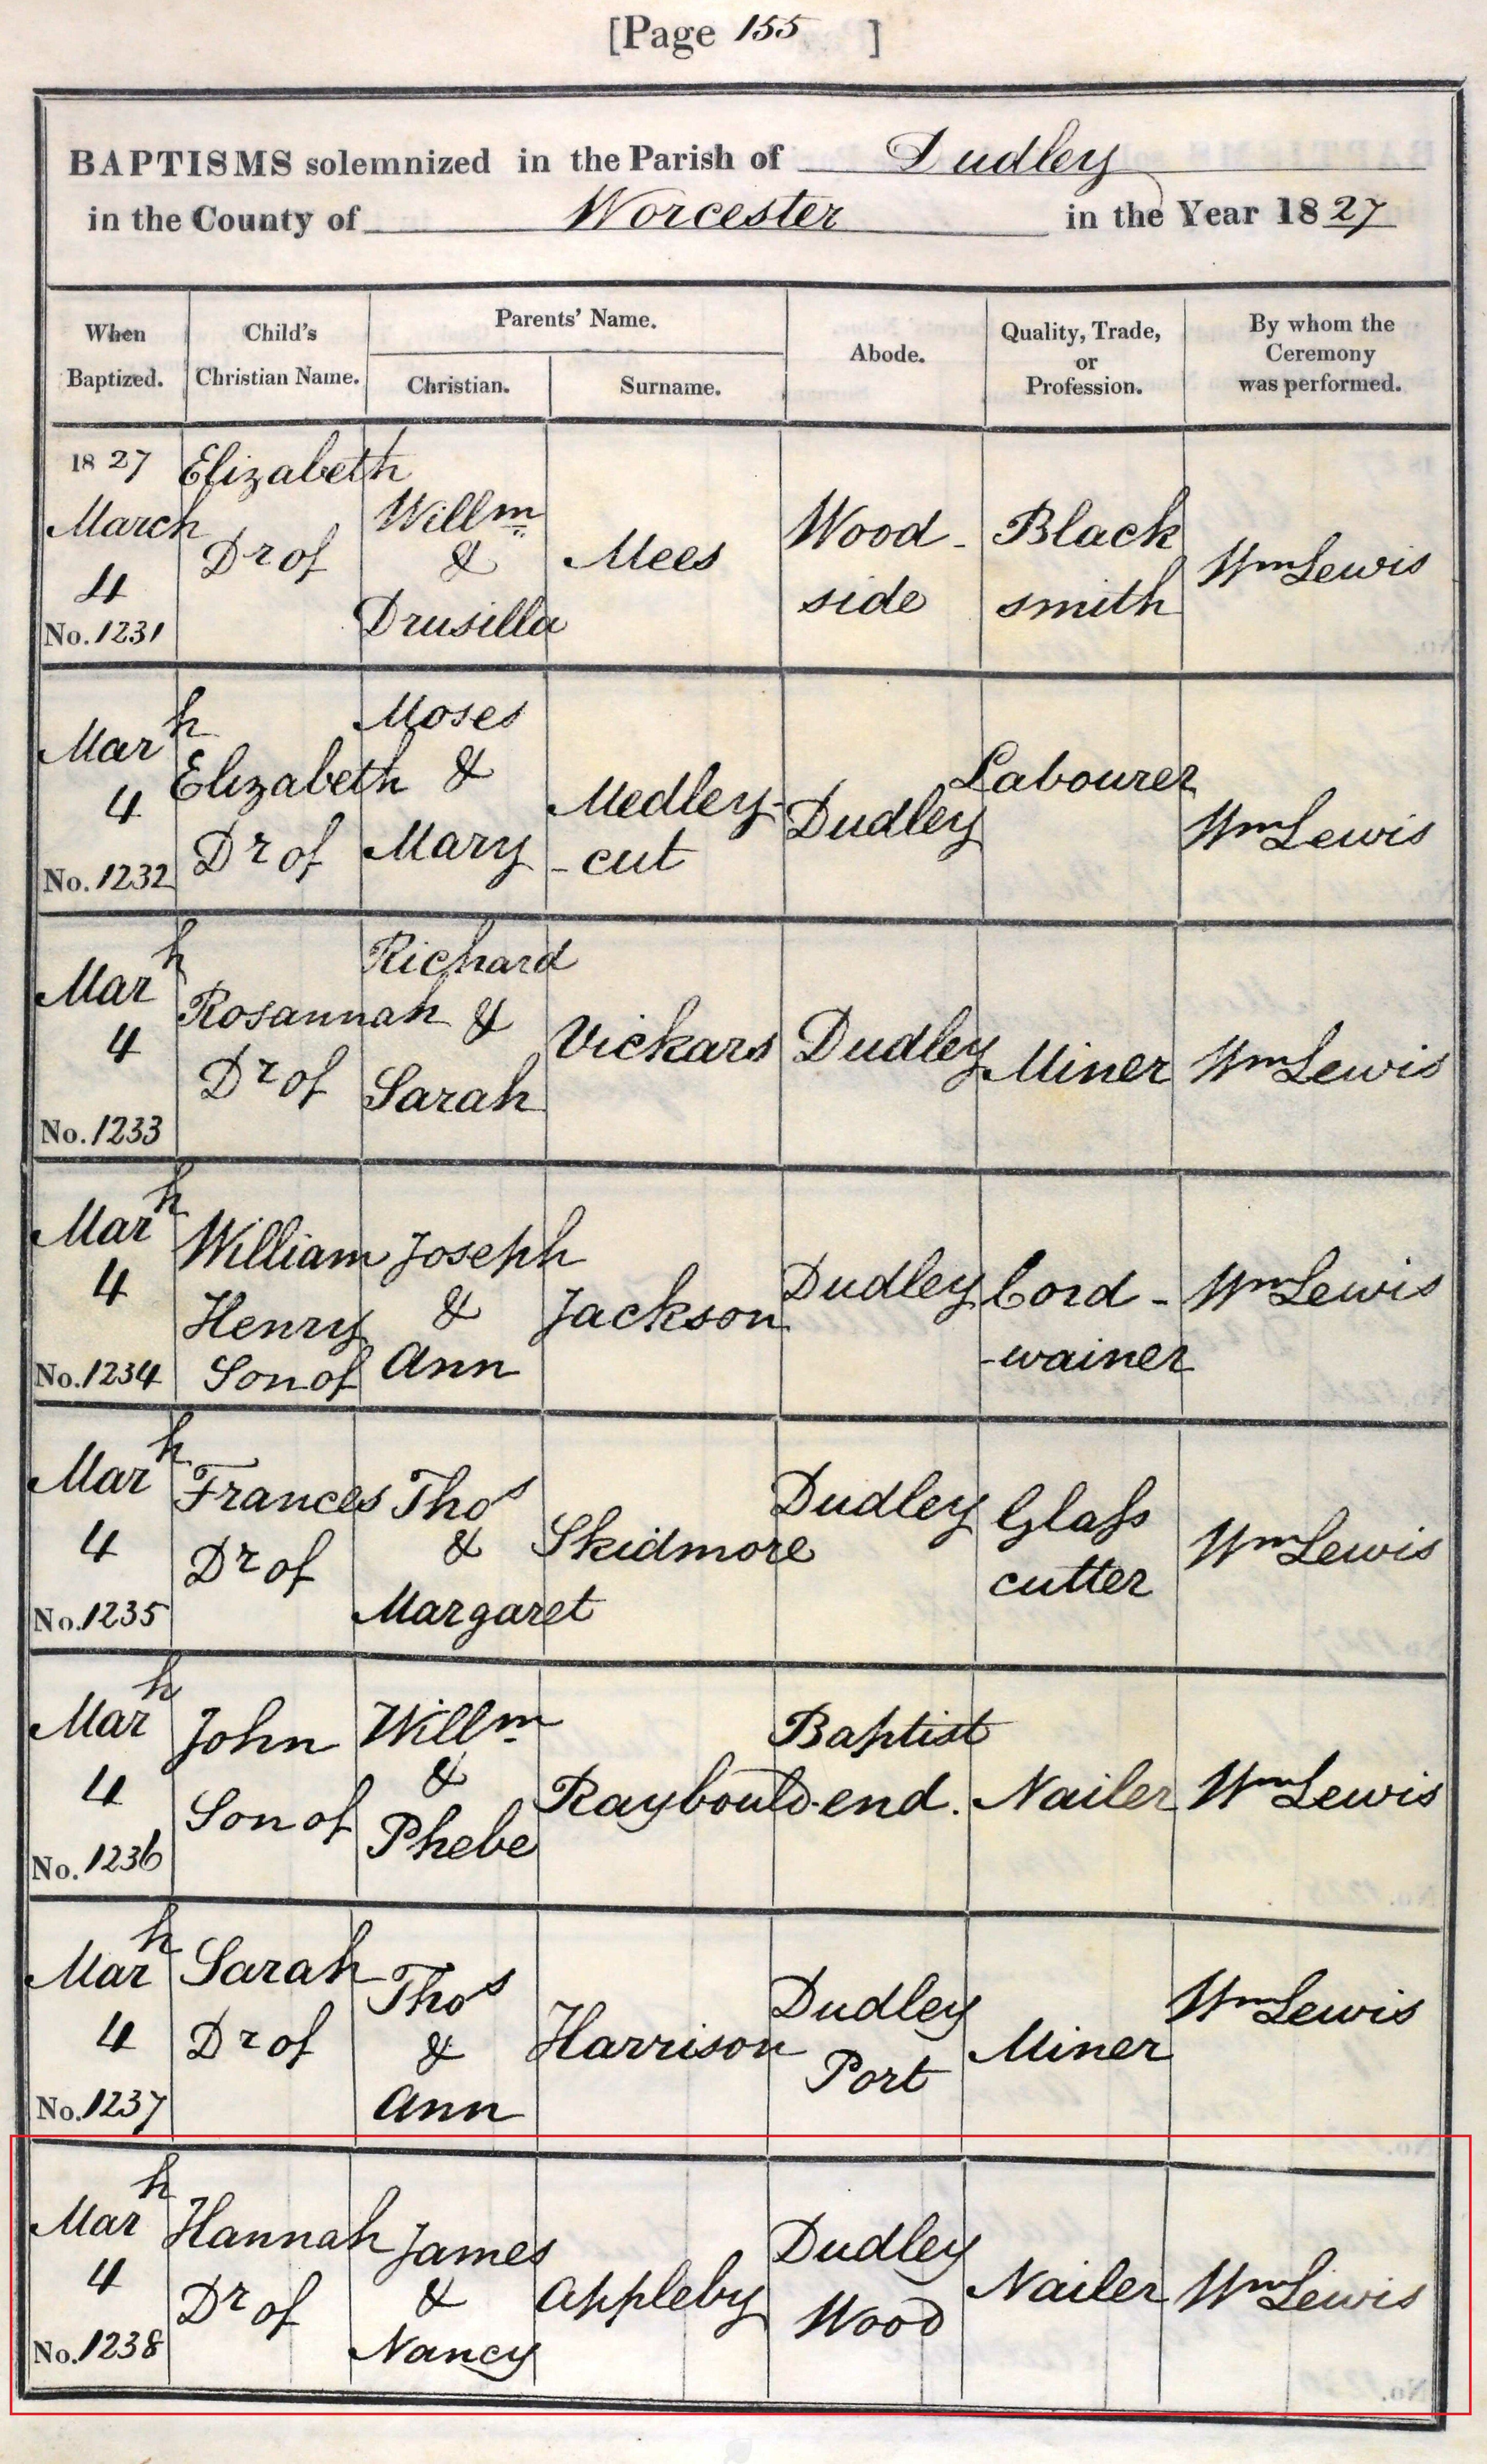 [Page 155 ]
BAPTISMS solemnized in the Parish of Dudley
in the County of Worcester in the Year 1827
When Baptized.
Child's Christian Name.
Parents' Name.
Christian.
Surname.
Abode.
Quality, Trade, or Profession.
By whom the Ceremony was performed.
1827
March
4
No. 1231
Elizabeth
Dr of
Willm
&
Drusilla
Mees
Wood-
side
Black
smith
Wm Lewis
Marh
4
No. 1232
Elizabeth
Dr of
Moses
&
Mary
Medley-
-cut
Dudley
Labourer
Wm Lewis
Marh
4
No. 1233
Rosannah
Dr of
Richard
&
Sarah
Vickars
Dudley
Miner
Wm Lewis
Marh
4
No. 1234
William
Henry
Son of
Joseph
&
Ann
Jackson
Dudley
Cord-
-wainer
Wm Lewis
Marh
4
No. 1235
Frances
Dr of
Thos
&
Margaret
Skidmore
Dudley
Glass
cutter
Wm Lewis
Marh
4
No. 1236
John
Son of
Willm
&
Phebe
Raybould
Baptist
end.
Nailer
Wm Lewis
Marh
4
No. 1237
Sarah
Dr of
Thos
&
Ann
Harrison
Dudley
Port
Miner
Wm Lewis
Marh
4
No. 1238
Hannah
Dr of
James
&
Nancy
Appleby
Dudley
Wood
Nailer
Wm Lewis